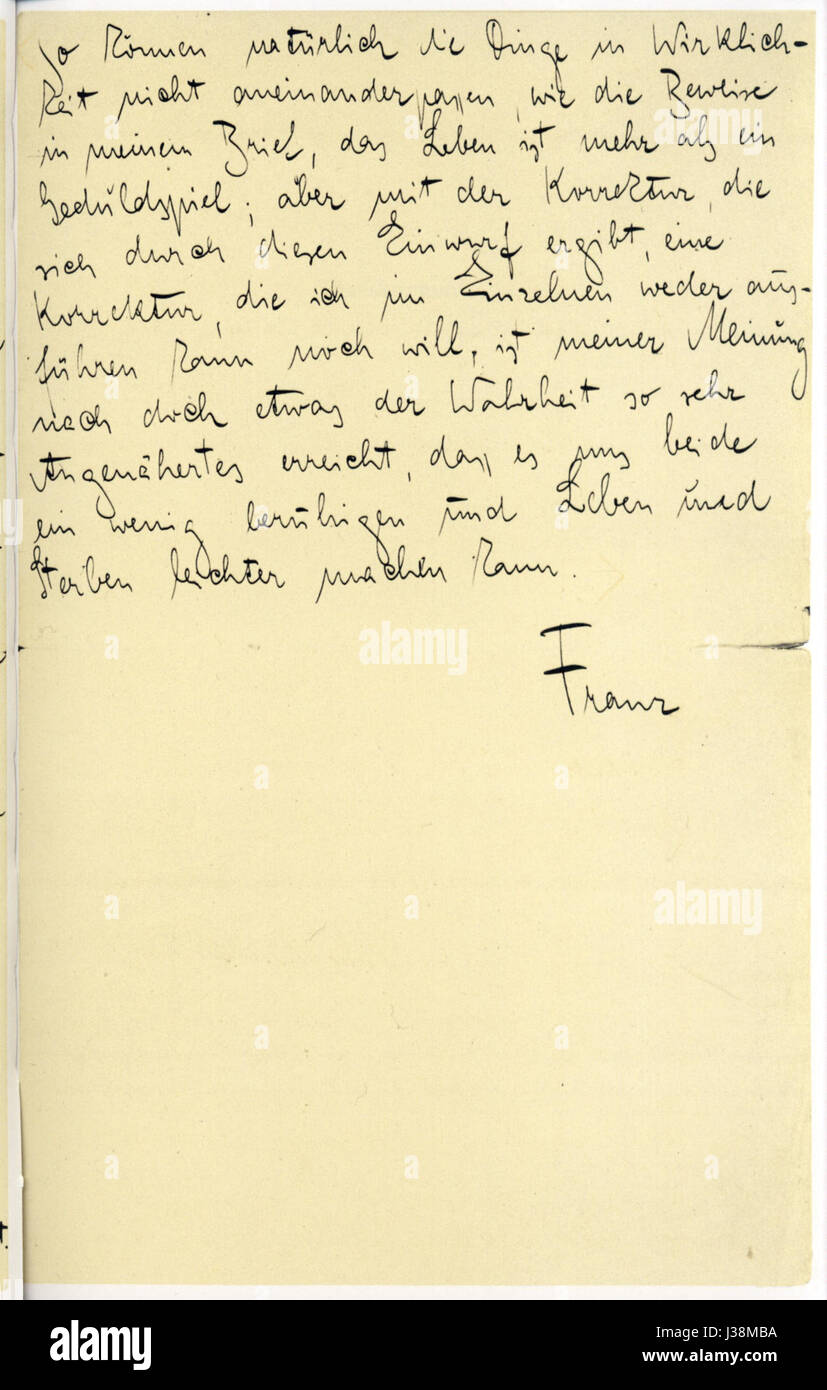 So können natürlich die Dinge in Wirklich-
keit nicht aneinanderpassen, wie die Beweise
in meinem Brief, das Leben ist mehr als ein
Geduldspiel; aber mit der Korrektur, die
sich durch diesen Einwurf ergibt, eine
Korrektur, die ich im Einzelnen weder aus-
führen kann noch will, ist meiner Meinung
nach doch etwas der Wahrheit so sehr
Angenähertes erreicht, dass es uns beide
ein wenig beruhigen und Leben und
Sterben leichter machen kann.
Franz
alamy
a
alamy
J38MBA
www.alamy.com